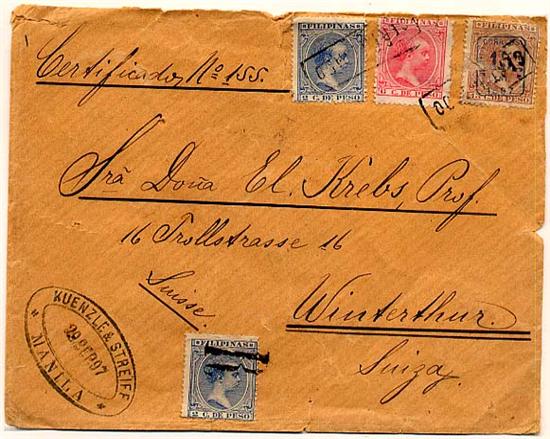 1
Certificado, No 155.
FILIPINAS
2 C. DE PESO
FILIPINAS
6 C. DE PESO
FILIPINAS
CORREOS
15
C. DE PESO
Srã Doña El. Krebs, Prof.
16 Trollstrasse 16
Suisse.
Winterthur.
Suiza.
KUENZLE & STREIFF
29 SEP 97
* MANILA *
FILIPINAS
2 C. DE PESO